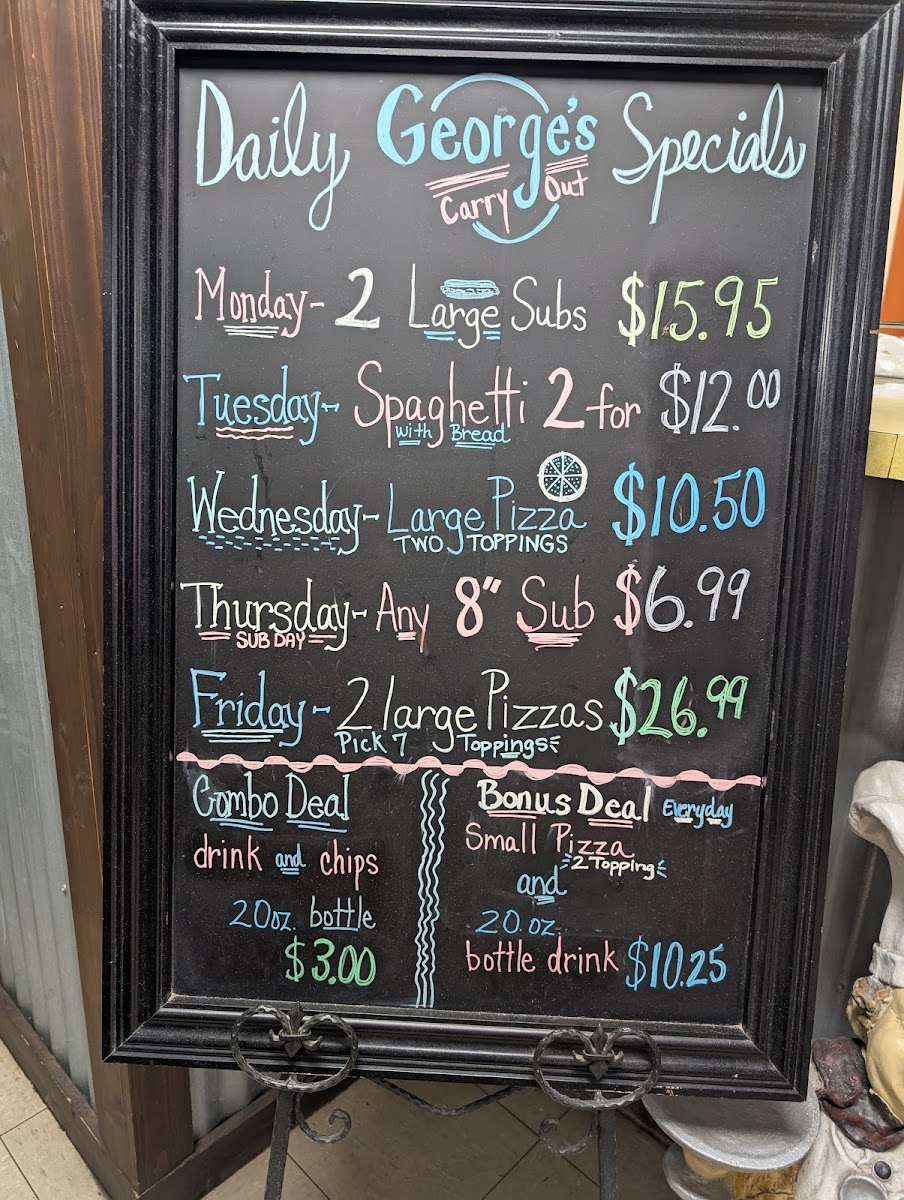 Daily George's Specials
Carry Out
Monday- 2 Large Subs $15.95
Tuesday- Spaghetti 2 for $12.00
with Bread
Wednesday- Large Pizza $10.50
TWO TOPPINGS
Thursday- Any 8" Sub $6.99
SUB DAY
Friday- 2 large Pizzas $26.99
Pick 7 Toppings
Combo Deal
drink and chips
20oz. bottle
$3.00
Bonus Deal Everyday
Small Pizza
2 Topping
and
20.oz.
bottle drink $10.25